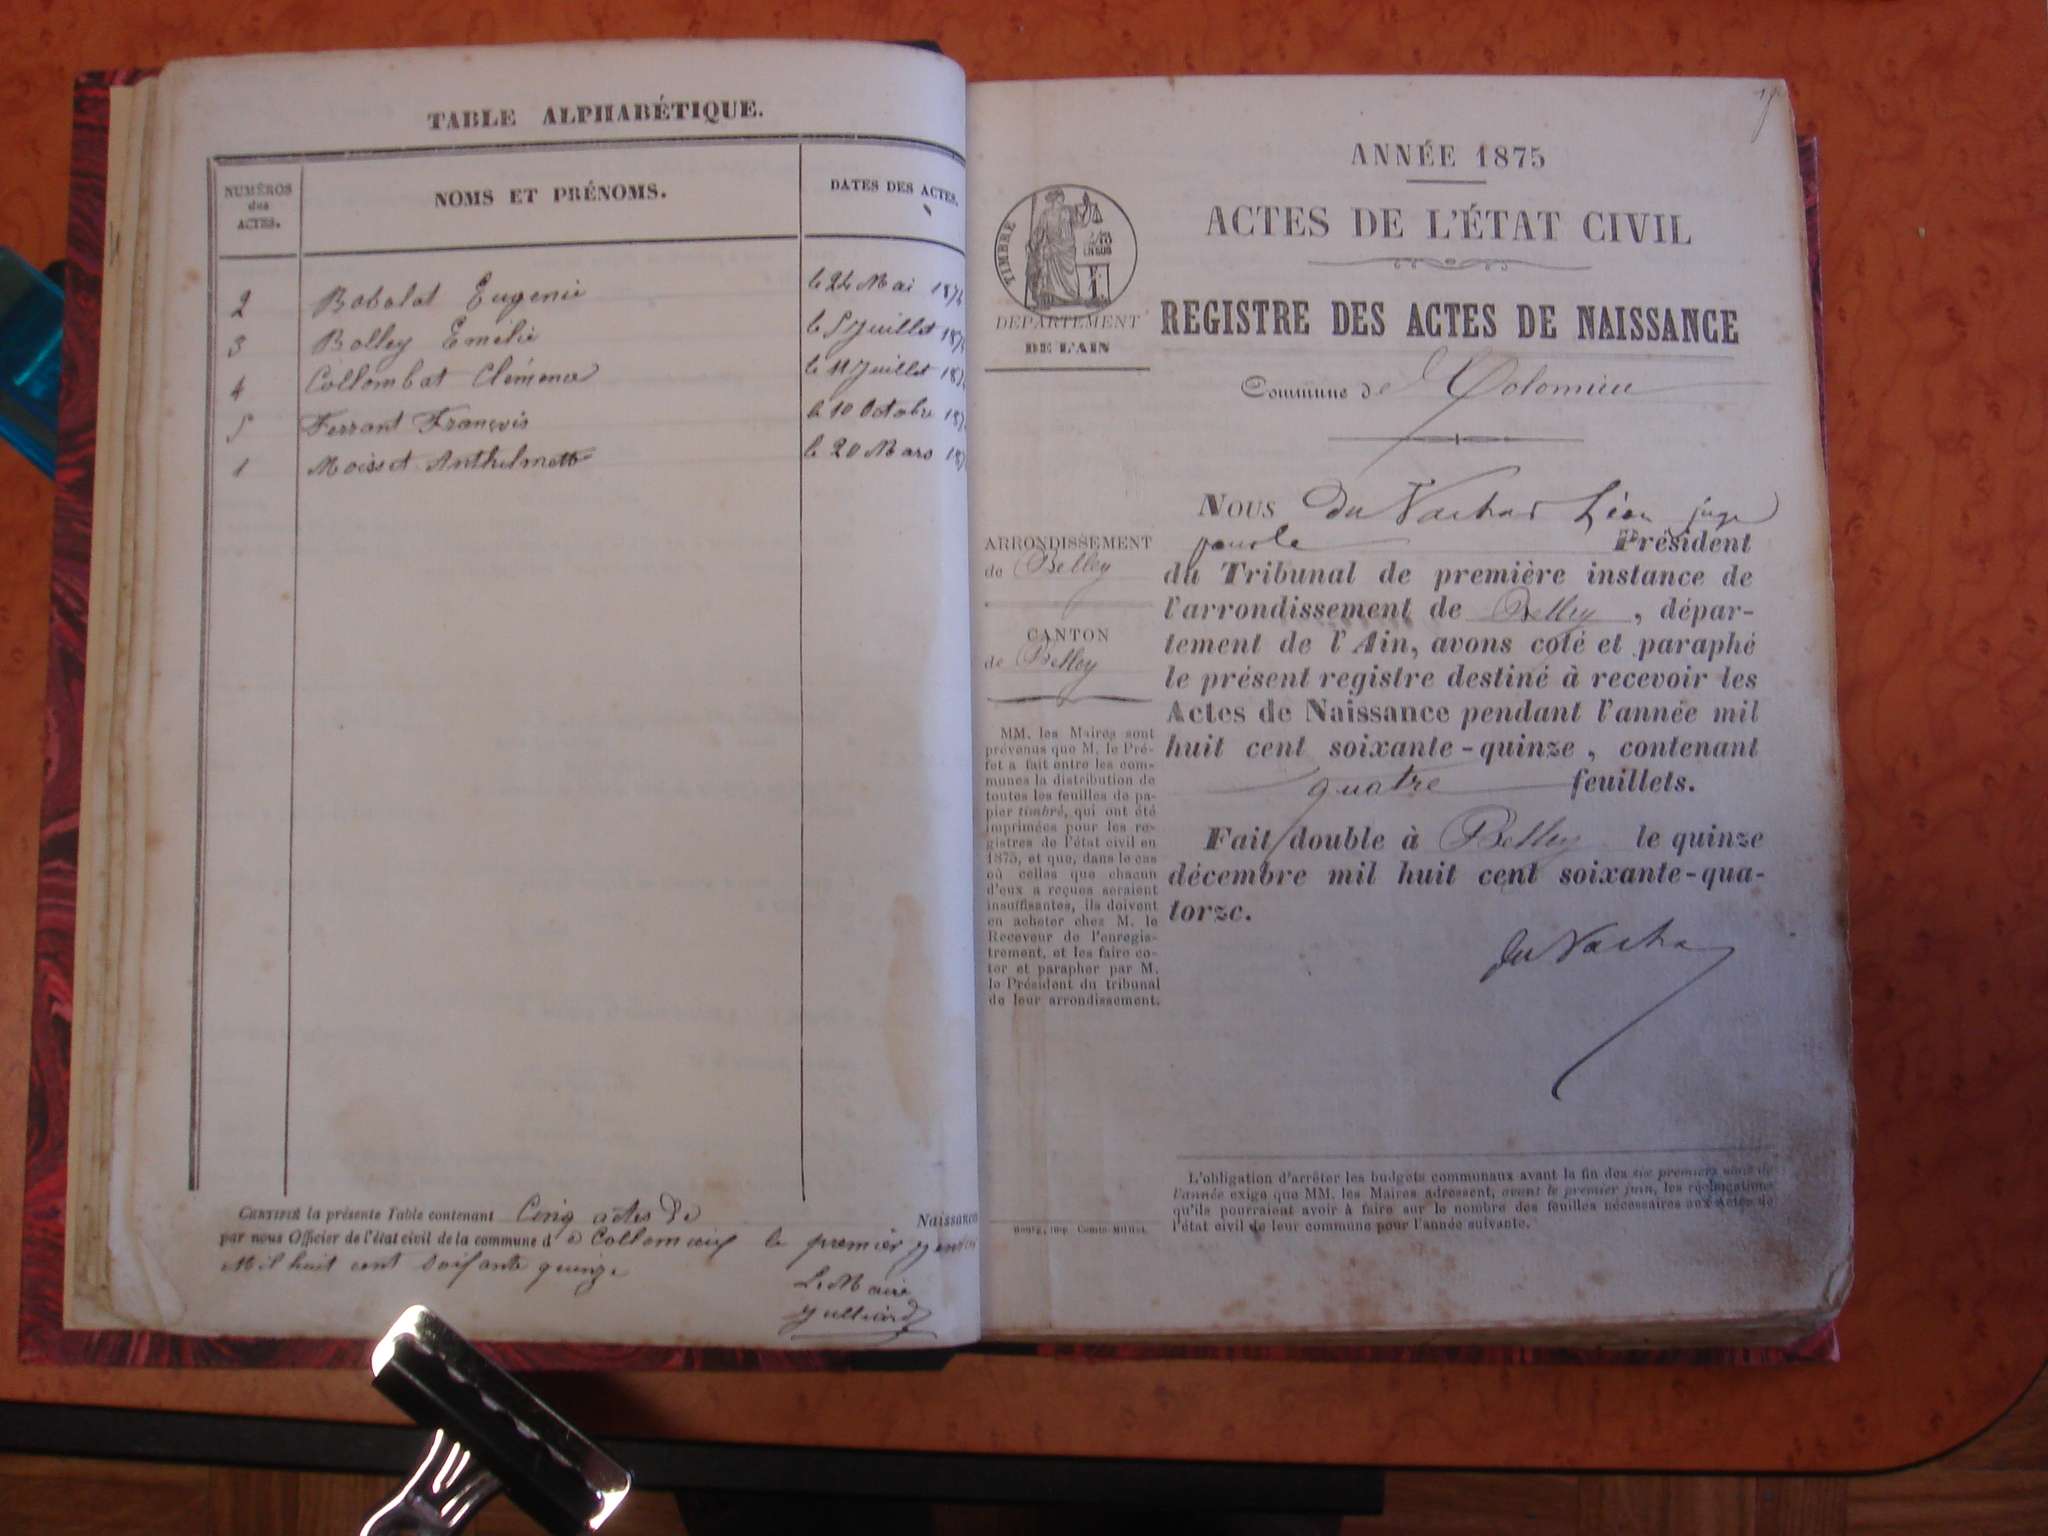 TABLE ALPHABÉTIQUE.
NUMÉROS
des
ACTES.
NOMS ET PRÉNOMS.
DATES DES ACTES.
2 Babolat Eugenie le 24 Mai 187
3 Bolley Emélie le 5 Juillet 187
4 Collombat Clémence le 11 Juillet 187
5 Ferrant François le 10 Octobre 187
1 Moisset Anthelmette le 20 Mars 187
CERTIFIÉ la présente Table contenant Cinq actes de Naissance
par nous Officier de l'état civil de la commune d e Collomieux le premier Janvier
Mil huit cent soixante quinze
Le Maire
Julliard
19
ANNÉE 1875
ACTES DE L'ÉTAT CIVIL
REGISTRE DES ACTES DE NAISSANCE
Commune de Colomieu
TIMBRE
2/10
EN SUS
DÉPARTEMENT
DE L'AIN
ARRONDISSEMENT
de Belley
CANTON
de Belley
MM. les Maires sont
prévenus que M. le Pré-
fet a fait entre les com-
munes la distribution de
toutes les feuilles de pa-
pier timbré, qui ont été
imprimées pour les re-
gistres de l'état civil en
1875, et que, dans le cas
où celles que chacun
d'eux a reçues seraient
insuffisantes, ils doivent
en acheter chez M. le
Receveur de l'enregis-
trement, et les faire co-
ter et parapher par M.
le Président du tribunal
de leur arrondissement.
NOUS Du Vachat Léon juge
pour le Président
du Tribunal de première instance de
l'arrondissement de Belley, dépar-
tement de l'Ain, avons coté et paraphé
le présent registre destiné à recevoir les
Actes de Naissance pendant l'année mil
huit cent soixante-quinze, contenant
quatre feuillets.
Fait double à Belley le quinze
décembre mil huit cent soixante-qua-
torze.
du Vacha
L'obligation d'arrêter les budgets communaux avant la fin des six premiers mois de
l'année exige que MM. les Maires adressent, avant le premier juin, les réclamations
qu'ils pourraient avoir à faire sur le nombre des feuilles nécessaires aux Actes de
l'état civil de leur commune pour l'année suivante.
Bourg, imp. Comte-Milliet.